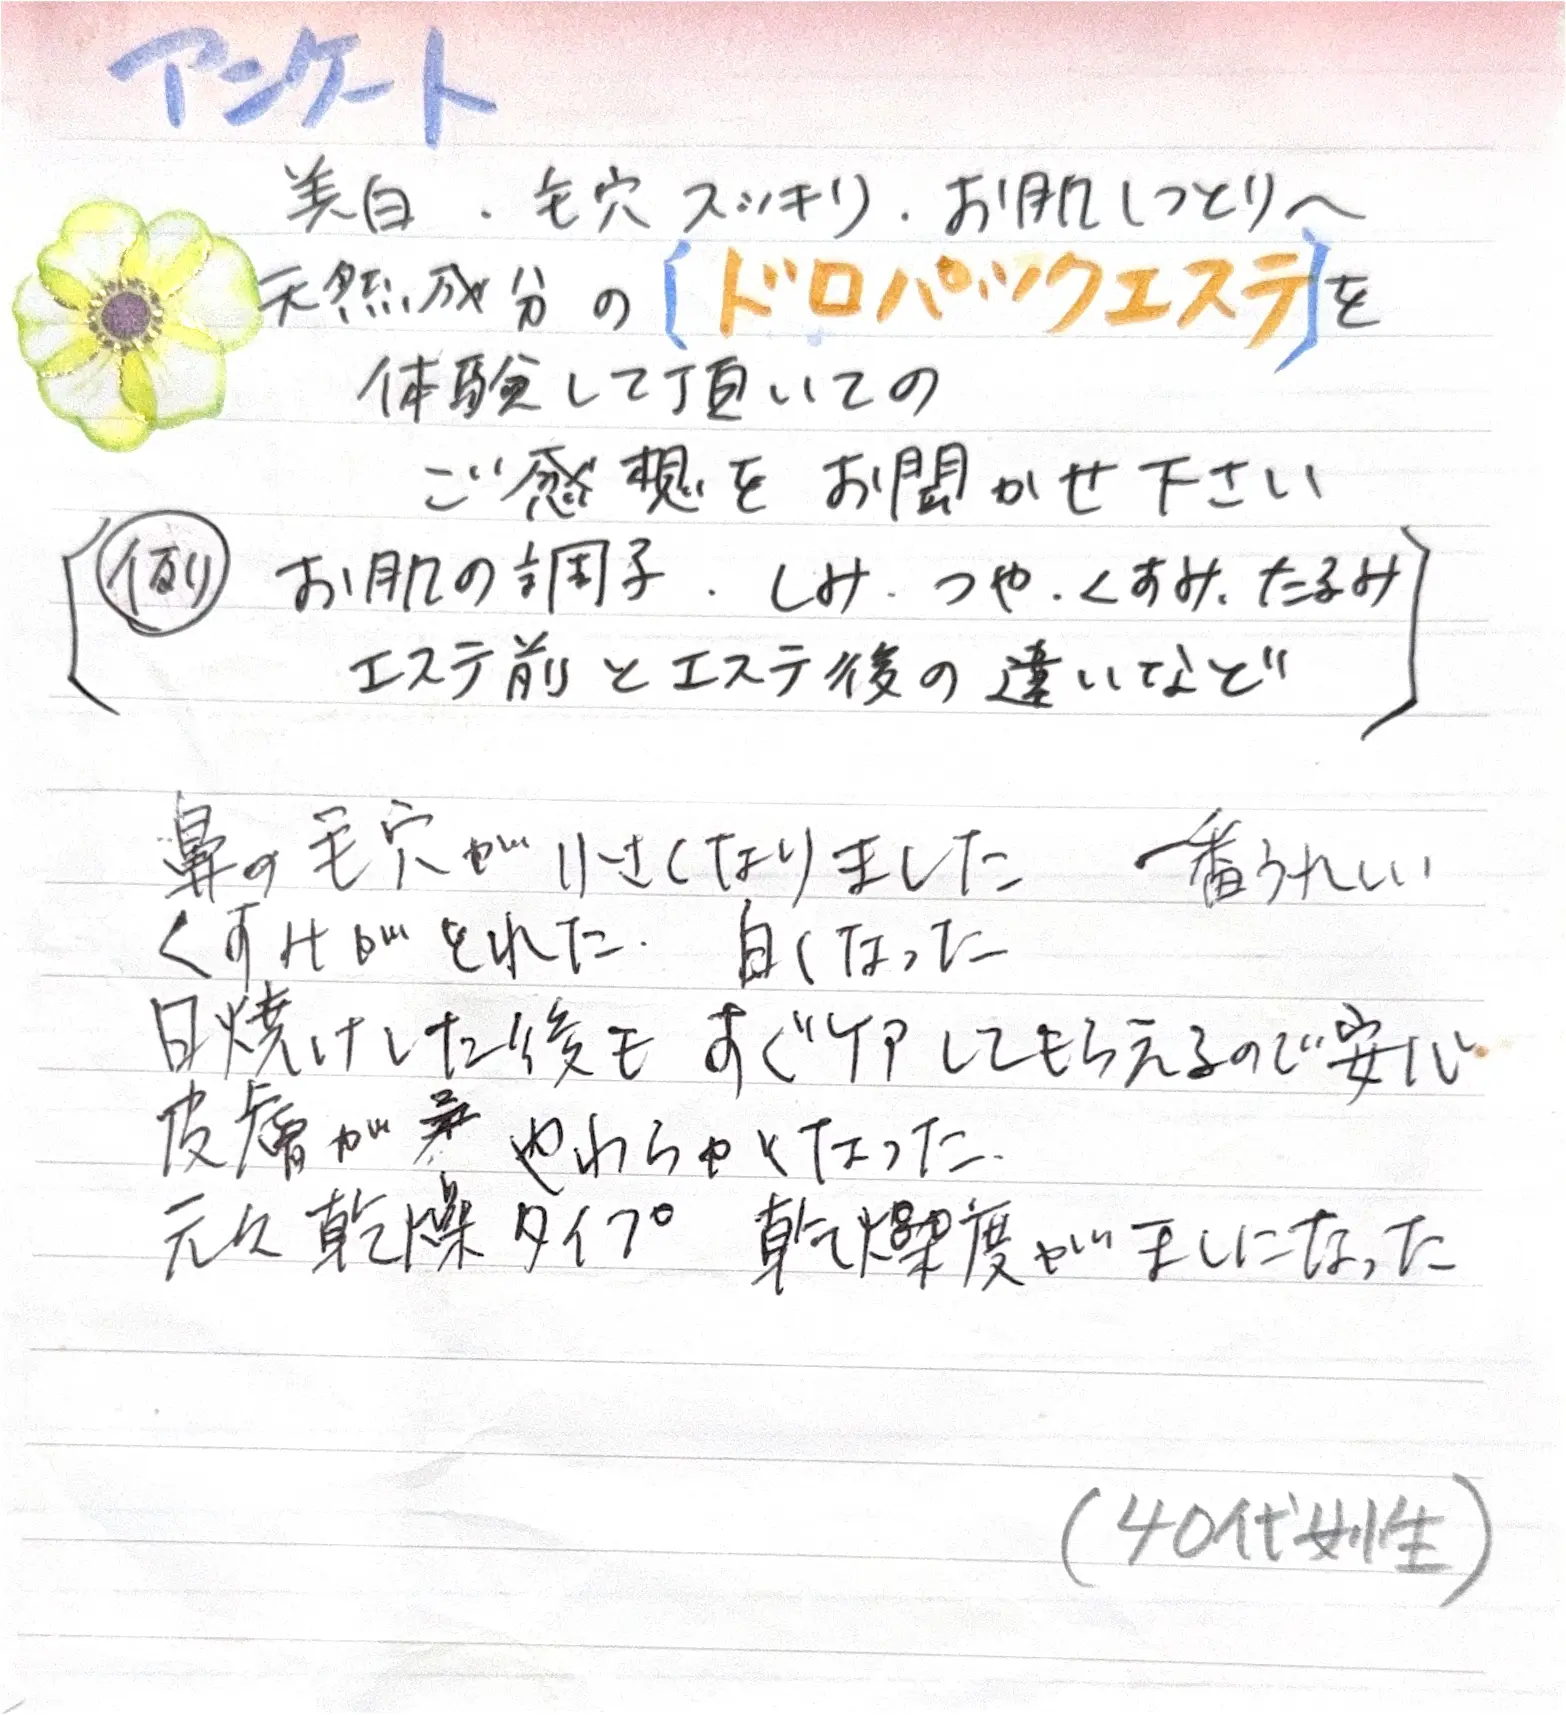 アンケート
美白・毛穴スッキリ・お肌しっとりへ
天然成分の[ドロパックエステ]を
体験して頂いての
ご感想をお聞かせ下さい
例 お肌の調子・しみ・つや・くすみ、たるみ
エステ前とエステ後の違いなど
鼻の毛穴が小さくなりました 一番うれしい
くすみがとれた. 白くなった
日焼けした後も すぐケアしてもらえるので安心
皮膚が やわらかくなった.
元々乾燥タイプ 乾燥度がましになった
(40代女性)